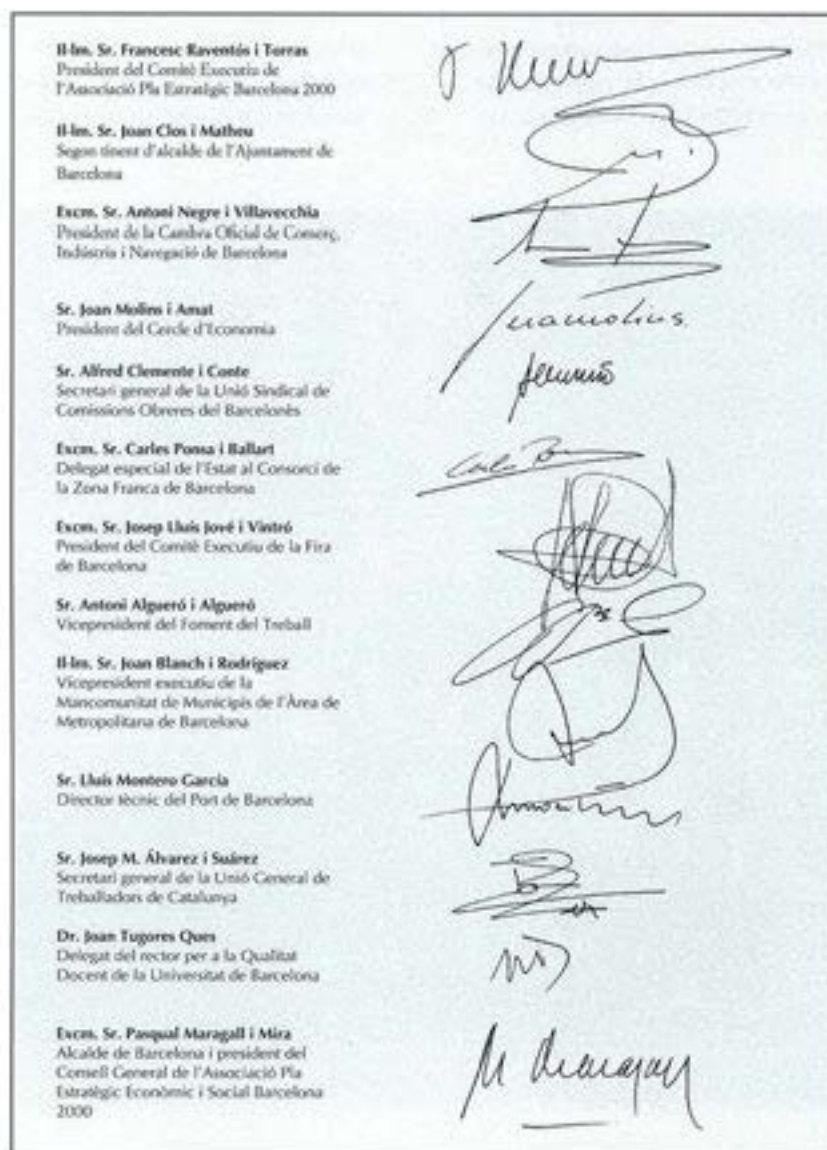 Il·lm. Sr. Francesc Raventós i Torras
President del Comitè Executiu de
l'Associació Pla Estratègic Barcelona 2000
Il·lm. Sr. Joan Clos i Matheu
Segon tinent d'alcalde de l'Ajuntament de
Barcelona
Excm. Sr. Antoni Negre i Villavecchia
President de la Cambra Oficial de Comerç,
Indústria i Navegació de Barcelona
Sr. Joan Molins i Amat
President del Cercle d'Economia
Joanmolins.
Sr. Alfred Clemente i Conte
Secretari general de la Unió Sindical de
Comissions Obreres del Barcelonès
Excm. Sr. Carles Ponsa i Ballart
Delegat especial de l'Estat al Consorci de
la Zona Franca de Barcelona
Excm. Sr. Josep Lluís Jové i Vintró
President del Comitè Executiu de la Fira
de Barcelona
Sr. Antoni Algueró i Algueró
Vicepresident del Foment del Treball
Il·lm. Sr. Joan Blanch i Rodríguez
Vicepresident executiu de la
Mancomunitat de Municipis de l'Àrea de
Metropolitana de Barcelona
Sr. Lluís Montero García
Director tècnic del Port de Barcelona
Sr. Josep M. Álvarez i Suárez
Secretari general de la Unió General de
Treballadors de Catalunya
Dr. Joan Tugores Ques
Delegat del rector per a la Qualitat
Docent de la Universitat de Barcelona
Excm. Sr. Pasqual Maragall i Mira
Alcalde de Barcelona i president del
Consell General de l'Associació Pla
Estratègic Econòmic i Social Barcelona
2000
Maragall